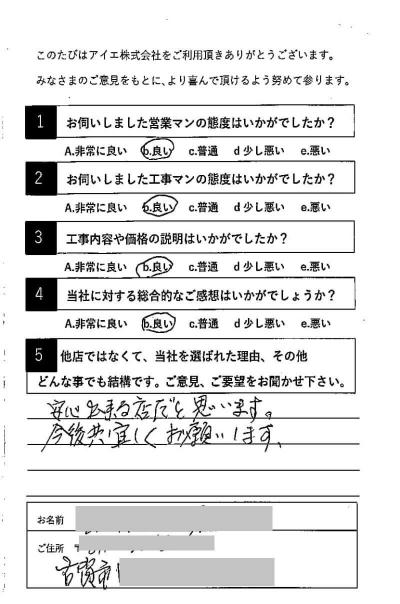 このたびはアイエ株式会社をご利用頂きありがとうございます。
みなさまのご意見をもとに、より喜んで頂けるよう努めて参ります。
1 お伺いしました営業マンの態度はいかがでしたか?
A.非常に良い b.良い c.普通 d 少し悪い e.悪い
2 お伺いしました工事マンの態度はいかがでしたか?
A.非常に良い b.良い c.普通 d 少し悪い e.悪い
3 工事内容や価格の説明はいかがでしたか?
A.非常に良い b.良い c.普通 d 少し悪い e.悪い
4 当社に対する総合的なご感想はいかがでしょうか?
A.非常に良い b.良い c.普通 d 少し悪い e.悪い
5 他店ではなくて、当社を選ばれた理由、その他
どんな事でも結構です。ご意見、ご要望をお聞かせ下さい。
安心出来る店だと思います。
今後共宜しくお願いします。
お名前
ご住所 〒
古賀市